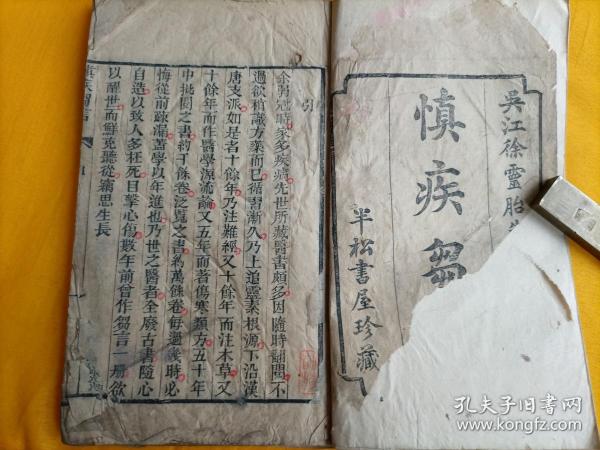 吳江徐靈胎
慎疾芻
半松書屋珍藏
引
余弱冠時家多疾病先世所藏醫書頗多因隨時翻閱不
過欲稍識方藥而已循習漸久乃上追靈素根源下沿漢
唐支派如是者十餘年乃注難經又十餘年而注本草又
十餘年而作醫學源流論又五年而著傷寒類方五十年
中批閱之書約千餘卷泛覽之書約萬餘卷每過幾時必
悔從前疎漏蓋學以年進也乃世之醫者全廢古書隨心
自造以致人多枉死目擊心傷數年前曾作芻言一册欲
以醒世而鮮克聽從竊思生長
慎疾芻言
孔夫子旧书网
www.kongfz.com